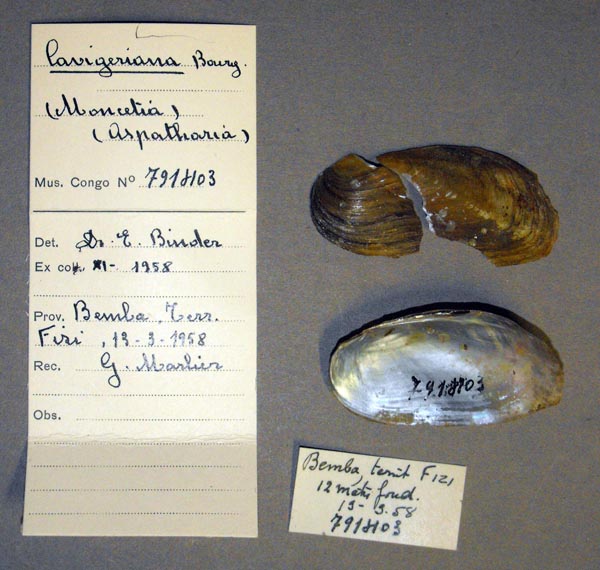 Lavigeriana Bourg.
(Moncetia)
(Aspatharia)
Mus. Congo Nº 791803
Det. Dr. E. Binder
Ex coll. XI- 1958
Prov. Bemba, Terr.
Fizi, 13-3-1958
Rec. G. Marlier
Obs.
791803
Bemba, territ Fizi
12 mètr fond.
13-3.58
791803